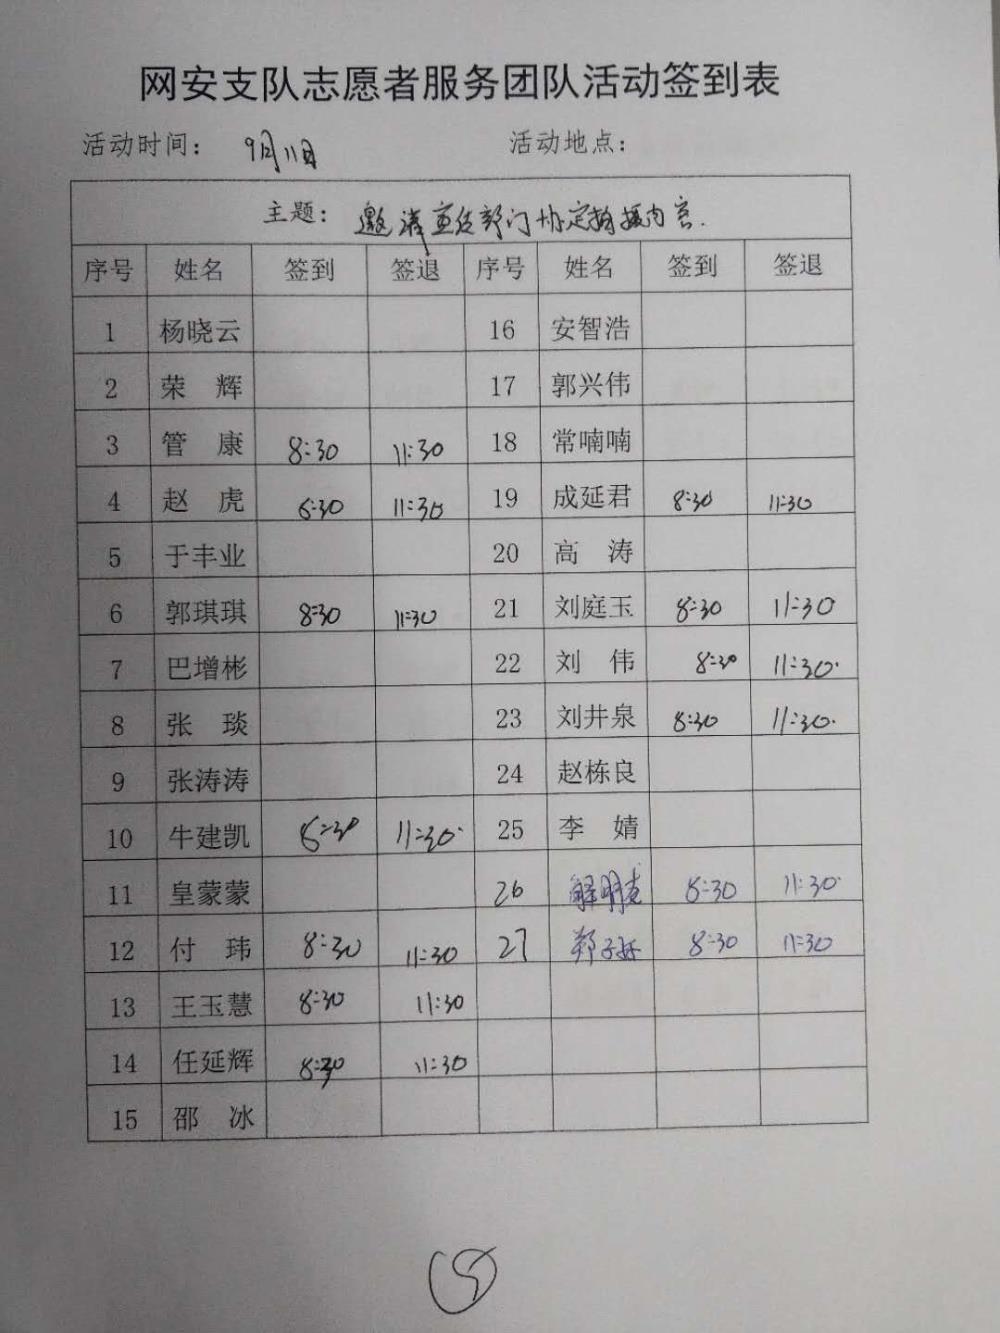 网安支队志愿者服务团队活动签到表
活动时间： 9月11日 活动地点：
主题： 邀请宣传部门协定拍摄内容.
序号 姓名 签到 签退 序号 姓名 签到 签退
1 杨晓云 16 安智浩
2 荣 辉 17 郭兴伟
3 管 康 8:30 11:30 18 常喃喃
4 赵 虎 8:30 11:30 19 成延君 8:30 11:30
5 于丰业 20 高 涛
6 郭琪琪 8:30 11:30 21 刘庭玉 8:30 11:30
7 巴增彬 22 刘 伟 8:30 11:30.
8 张 琰 23 刘井泉 8:30 11:30.
9 张涛涛 24 赵栋良
10 牛建凯 8:30 11:30. 25 李 婧
11 皇蒙蒙 26 8:30 11:30.
12 付 玮 8:30 11:30 27 8:30 11:30
13 王玉慧 8:30 11:30
14 任延辉 8:30 11:30
15 邵 冰